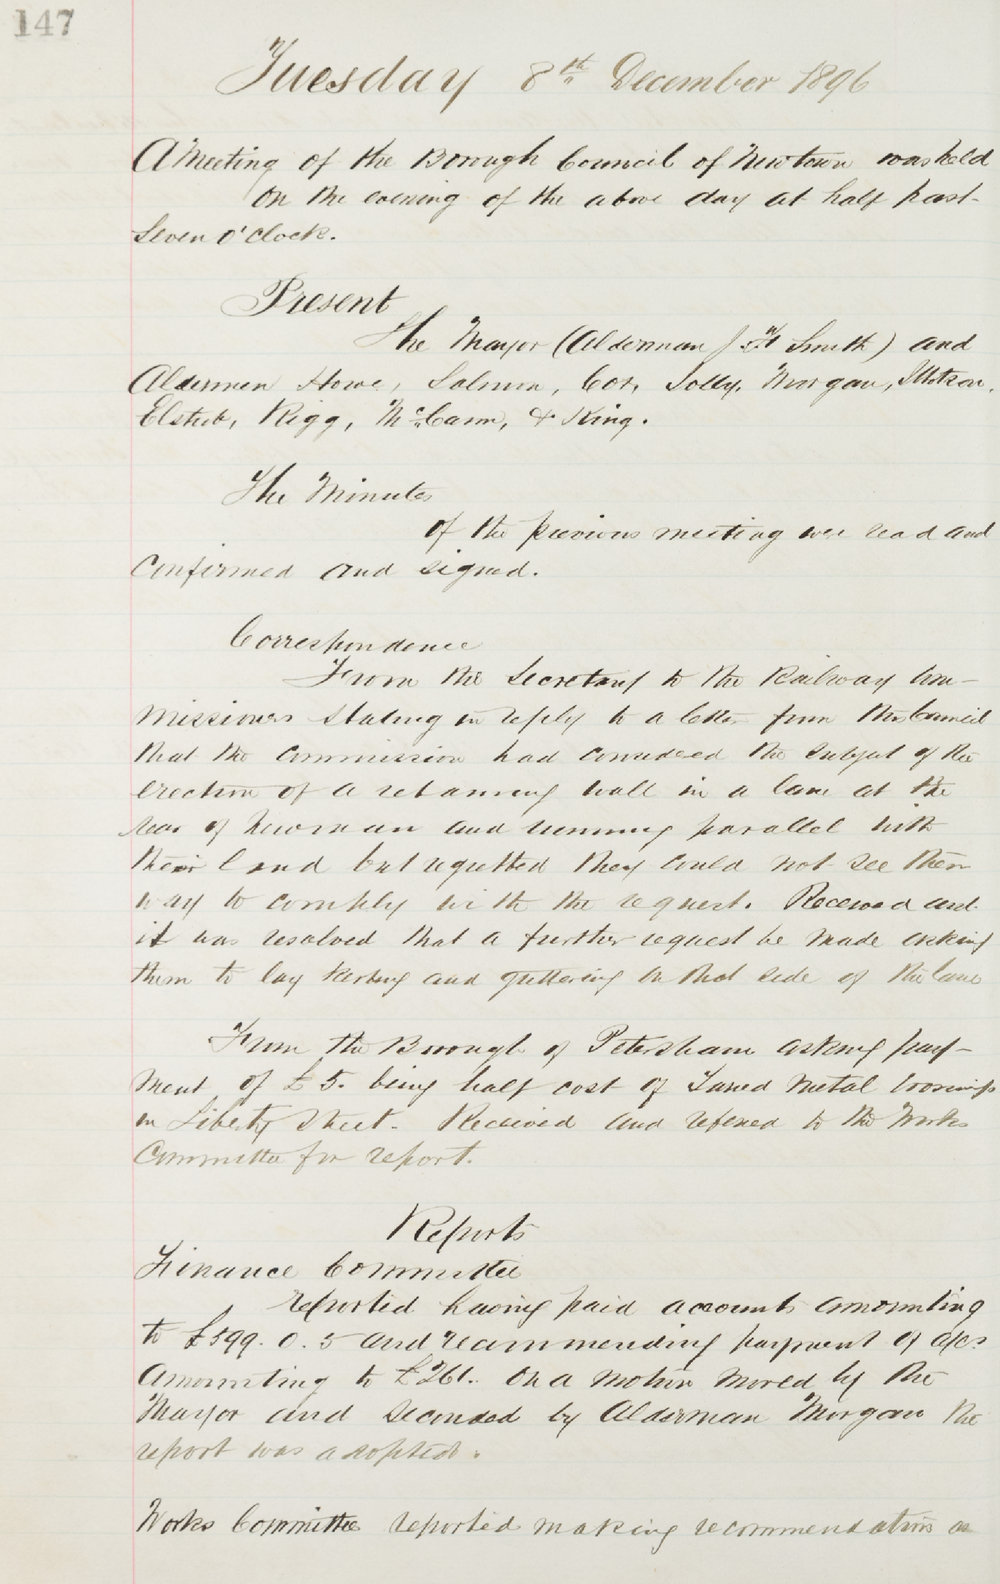 147
Tuesday 8th December 1896
A Meeting of the Borough Council of Newtown was held
On the evening of the above day at half past
Seven o'clock.
Present
The Mayor (Alderman J Smith) and
Aldermen Howe, Salmon, Cox, Jolly, Morgan,
Elstub, Rigg, McCann, & King.
The Minutes
of the previous meeting were read and
Confirmed and signed.
Correspondence
From the Secretary to the Railway Com-
missioners stating in reply to a letter from this Council
that the Commission had considered the subject of the
erection of a retaining wall in a lane at the
rear of Newman and running parallel with
their land but regretted they could not see their
way to comply with the request. Received and
it was resolved that a further request be made asking
them to lay kerbing and guttering on that side of the lane
From the Borough of Petersham asking pay-
ment of £5. being half cost of Tarred Metal Crossings
in Liberty Street. Received and refered to the Works
Committee for report.
Reports
Finance Committee
reported having paid accounts amounting
to £599. 0. 5 and recommending payment of a/cs
Amounting to £261.. On a motion moved by the
Mayor and seconded by Alderman Morgan the
report was adopted.
Works Committee reported making recommendations as